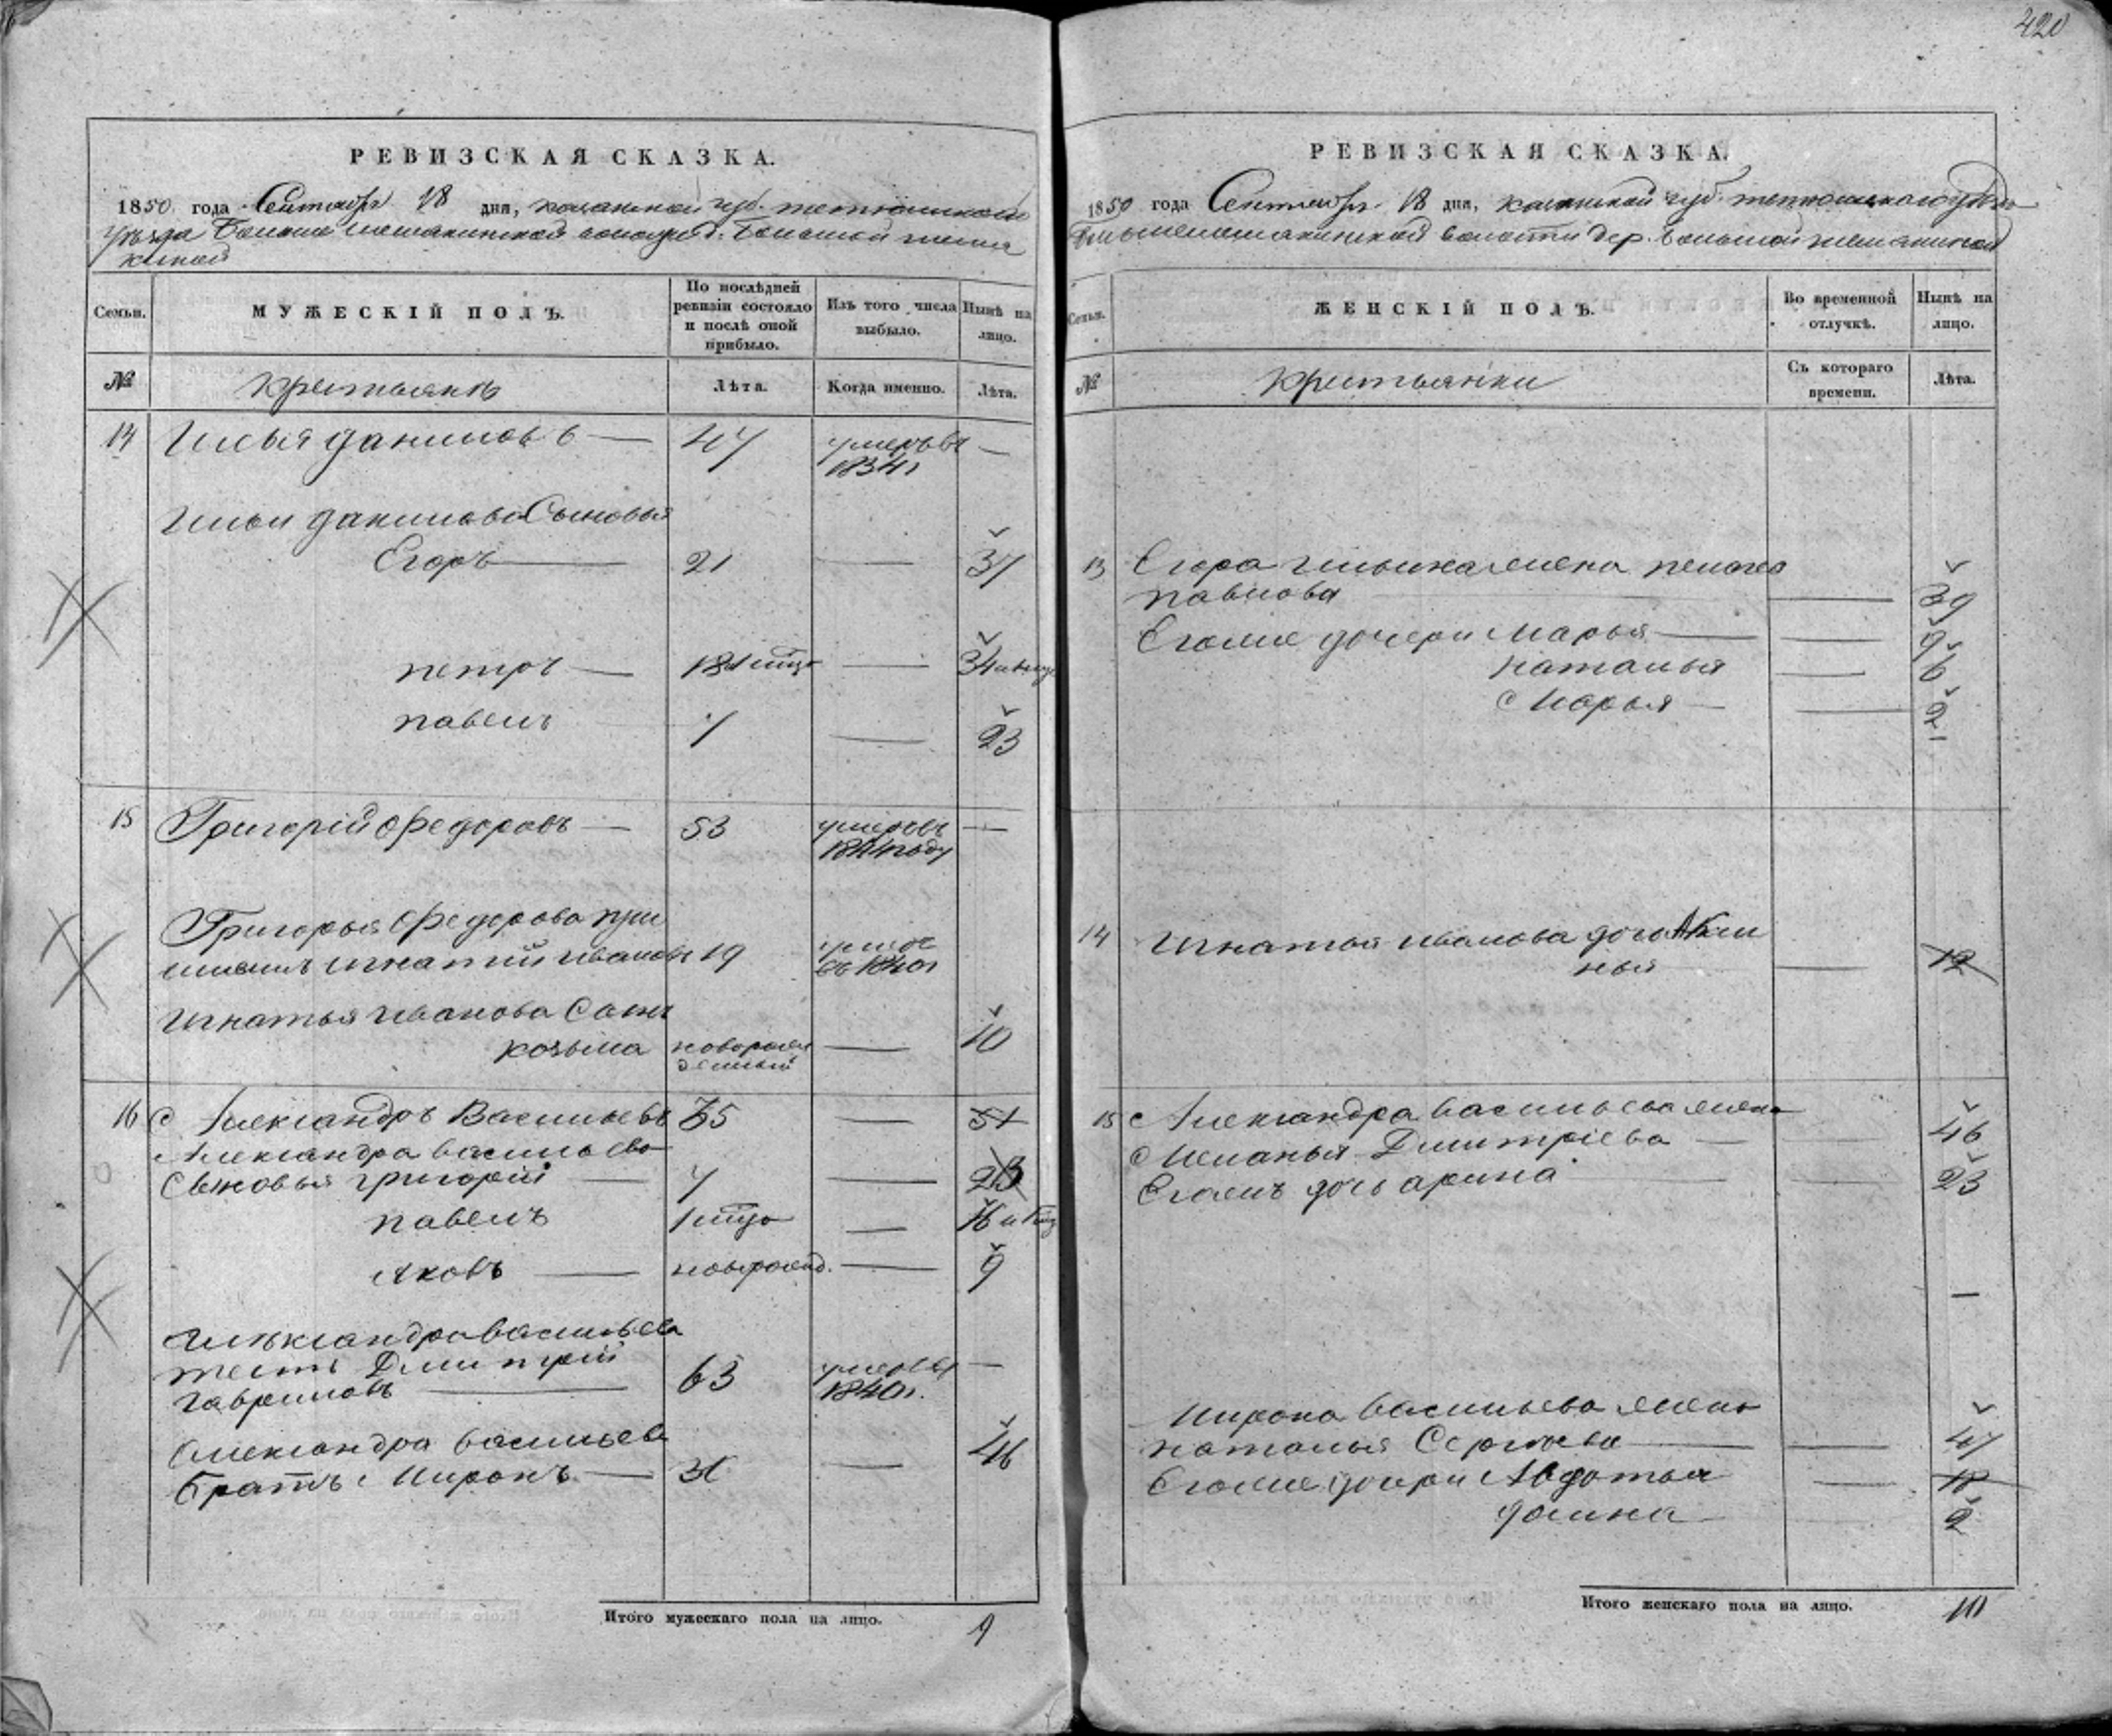 420
РЕВИЗСКАЯ СКАЗКА.
1850 года Сентября 18 дня, казанской губ. тетюшскаго
уѣзда Больше шемякинской волости д. Большой шемя
киной
Семьи. МУЖЕСКІЙ ПОЛЪ. По послѣдней ревизіи состояло и послѣ оной прибыло. Изъ того числа выбыло. Нынѣ на лицо.
№ крестьянъ Лѣта. Когда именно. Лѣта.
14 Илья данилов ъ — 47 умеръ въ 1834г —
Ильи данилова Сыновья
Егоръ — 21 — 37
петръ — 18 — 34
павелъ 7 — 23
15 Григорій федоровъ — 53 умеръ въ 1844 году —
Григорья федорова при
игнатий иванов 19 въ 1840г
игнатья иванова Сынъ
козьма новорож денный — 10
16 Александръ Васильевъ 35 — 51
Александра васильева
Сыновья григорій — 7 — 23
павелъ — 16
яковъ — новорожд. — 9
Александра васильева
тесть Дмитрій
гавриловъ — 63 умеръ въ 1840г. —
Александра васильева
братъ Миронъ — 30 — 46
Итого мужескаго пола на лицо. 9
РЕВИЗСКАЯ СКАЗКА.
1850 года Сентября 18 дня, казанской губ. тетюшскаго уѣзда
Большешемякинской волости дер. большой шемякиной
Семьи. ЖЕНСКІЙ ПОЛЪ. Во временной отлучкѣ. Нынѣ на лицо.
№ крестьянки Съ котораго времени. Лѣта.
13 Егора ильина жена пелагея
павлова — 39
Егоже дочери Марья — 9
наталья — 6
Марья — 2
14 игнатья иванова дочь Акси
нья — 12
15 Александра васильева жена
Меланья Дмитріева — 46
Егожъ дочь арина — 23
—
Мирона васильева жена
наталья Сергеева — 47
Егоже дочери Авдотья — 18
домна — 2
Итого женскаго пола на лицо. 10